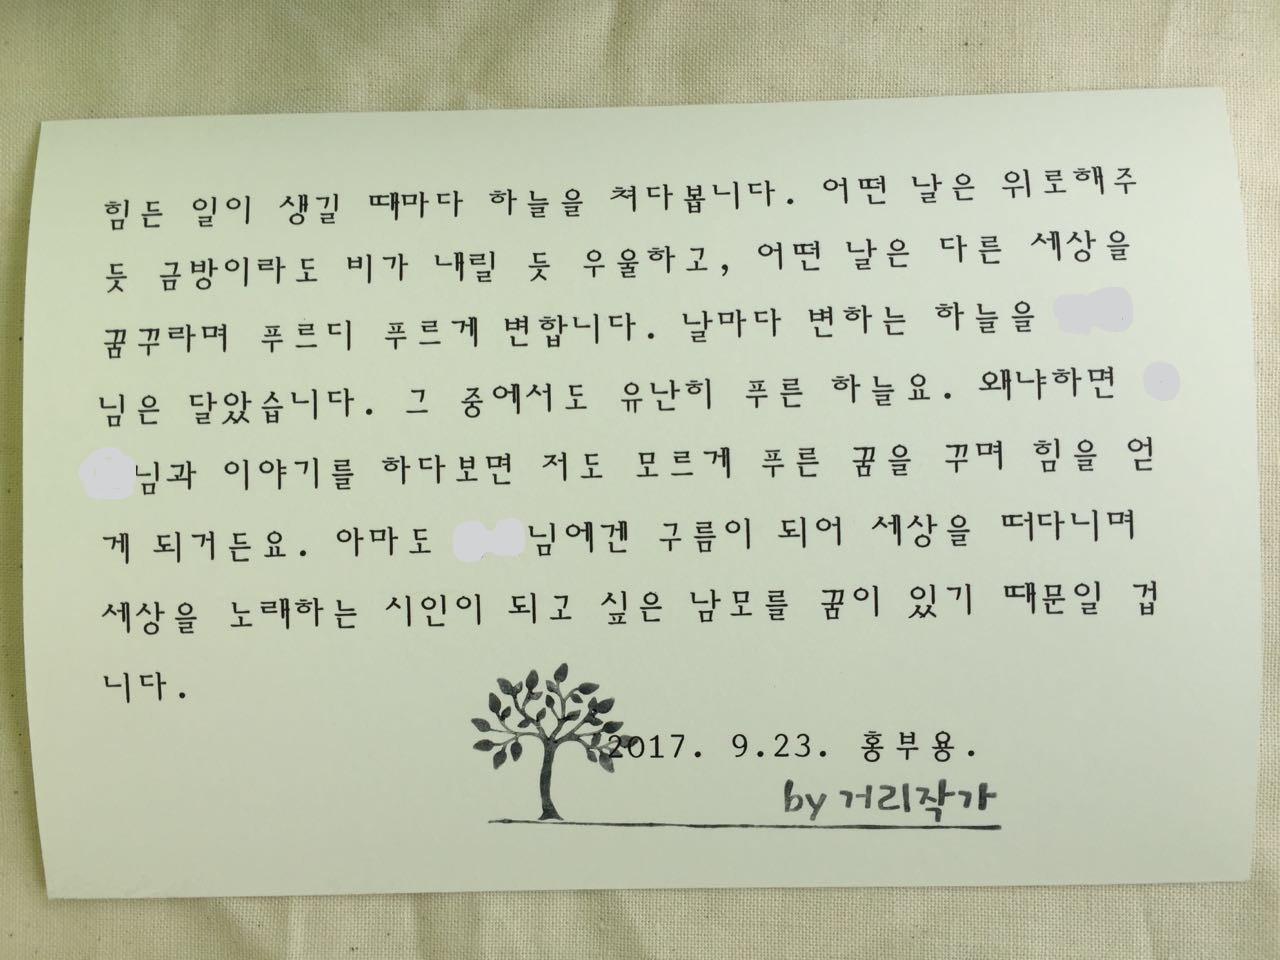 힘든 일이 생길 때마다 하늘을 쳐다봅니다. 어떤 날은 위로해주
듯 금방이라도 비가 내릴 듯 우울하고, 어떤 날은 다른 세상을
꿈꾸라며 푸르디 푸르게 변합니다. 날마다 변하는 하늘을
님은 닮았습니다. 그 중에서도 유난히 푸른 하늘요. 왜냐하면
님과 이야기를 하다보면 저도 모르게 푸른 꿈을 꾸며 힘을 얻
게 되거든요. 아마도 님에겐 구름이 되어 세상을 떠다니며
세상을 노래하는 시인이 되고 싶은 남모를 꿈이 있기 때문일 겁
니다.
2017. 9.23. 홍부용.
by 거리작가